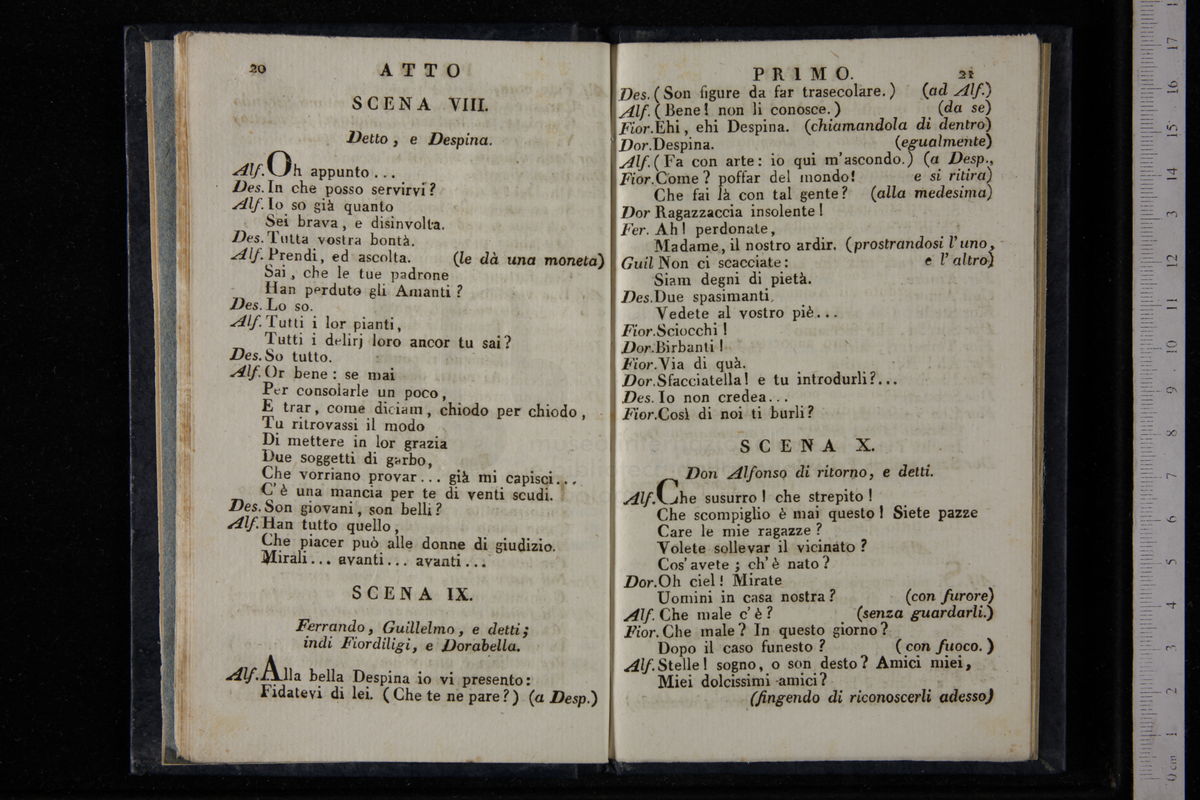 20 ATTO
SCENA VIII.
Detto, e Despina.
Alf. Oh appunto...
Des. In che posso servirvi?
Alf. Io so già quanto
Sei brava, e disinvolta.
Des. Tutta vostra bontà.
Alf. Prendi, ed ascolta. (le dà una moneta)
Sai, che le tue padrone
Han perduto gli Amanti?
Des. Lo so.
Alf. Tutti i lor pianti,
Tutti i delirj loro ancor tu sai?
Des. So tutto.
Alf. Or bene: se mai
Per consolarle un poco,
E trar, come diciam, chiodo per chiodo,
Tu ritrovassi il modo
Di mettere in lor grazia
Due soggetti di garbo,
Che vorriano provar... già mi capisci...
C'è una mancia per te di venti scudi.
Des. Son giovani, son belli?
Alf. Han tutto quello,
Che piacer può alle donne di giudizio.
Mirali... avanti... avanti...
SCENA IX.
Ferrando, Guillelmo, e detti;
indi Fiordiligi, e Dorabella.
Alf. Alla bella Despina io vi presento:
Fidatevi di lei. (Che te ne pare?) (a Desp.)
PRIMO. 21
Des. (Son figure da far trasecolare.) (ad Alf.)
Alf. (Bene! non li conosce.) (da se)
Fior. Ehi, ehi Despina. (chiamandola di dentro)
Dor. Despina. (egualmente)
Alf. (Fa con arte: io qui m'ascondo.) (a Desp.,
Fior. Come? poffar del mondo! e si ritira)
Che fai là con tal gente? (alla medesima)
Dor Ragazzaccia insolente!
Fer. Ah! perdonate,
Madame, il nostro ardir. (prostrandosi l'uno,
Guil Non ci scacciate: e l'altro)
Siam degni di pietà.
Des. Due spasimanti
Vedete al vostro piè...
Fior. Sciocchi!
Dor. Birbanti!
Fior. Via di quà.
Dor. Sfacciatella! e tu introdurli?...
Des. Io non credea...
Fior. Così di noi ti burli?
SCENA X.
Don Alfonso di ritorno, e detti.
Alf. Che susurro! che strepito!
Che scompiglio è mai questo! Siete pazze
Care le mie ragazze?
Volete sollevar il vicinato?
Cos'avete; ch'è nato?
Dor. Oh ciel! Mirate
Uomini in casa nostra? (con furore)
Alf. Che male c'è? (senza guardarli.)
Fior. Che male? In questo giorno?
Dopo il caso funesto? (con fuoco.)
Alf. Stelle! sogno, o son desto? Amici miei,
Miei dolcissimi amici?
(fingendo di riconoscerli adesso)
0 cm 1 2 3 4 5 6 7 8 9 10 11 12 13 14 15 16 17